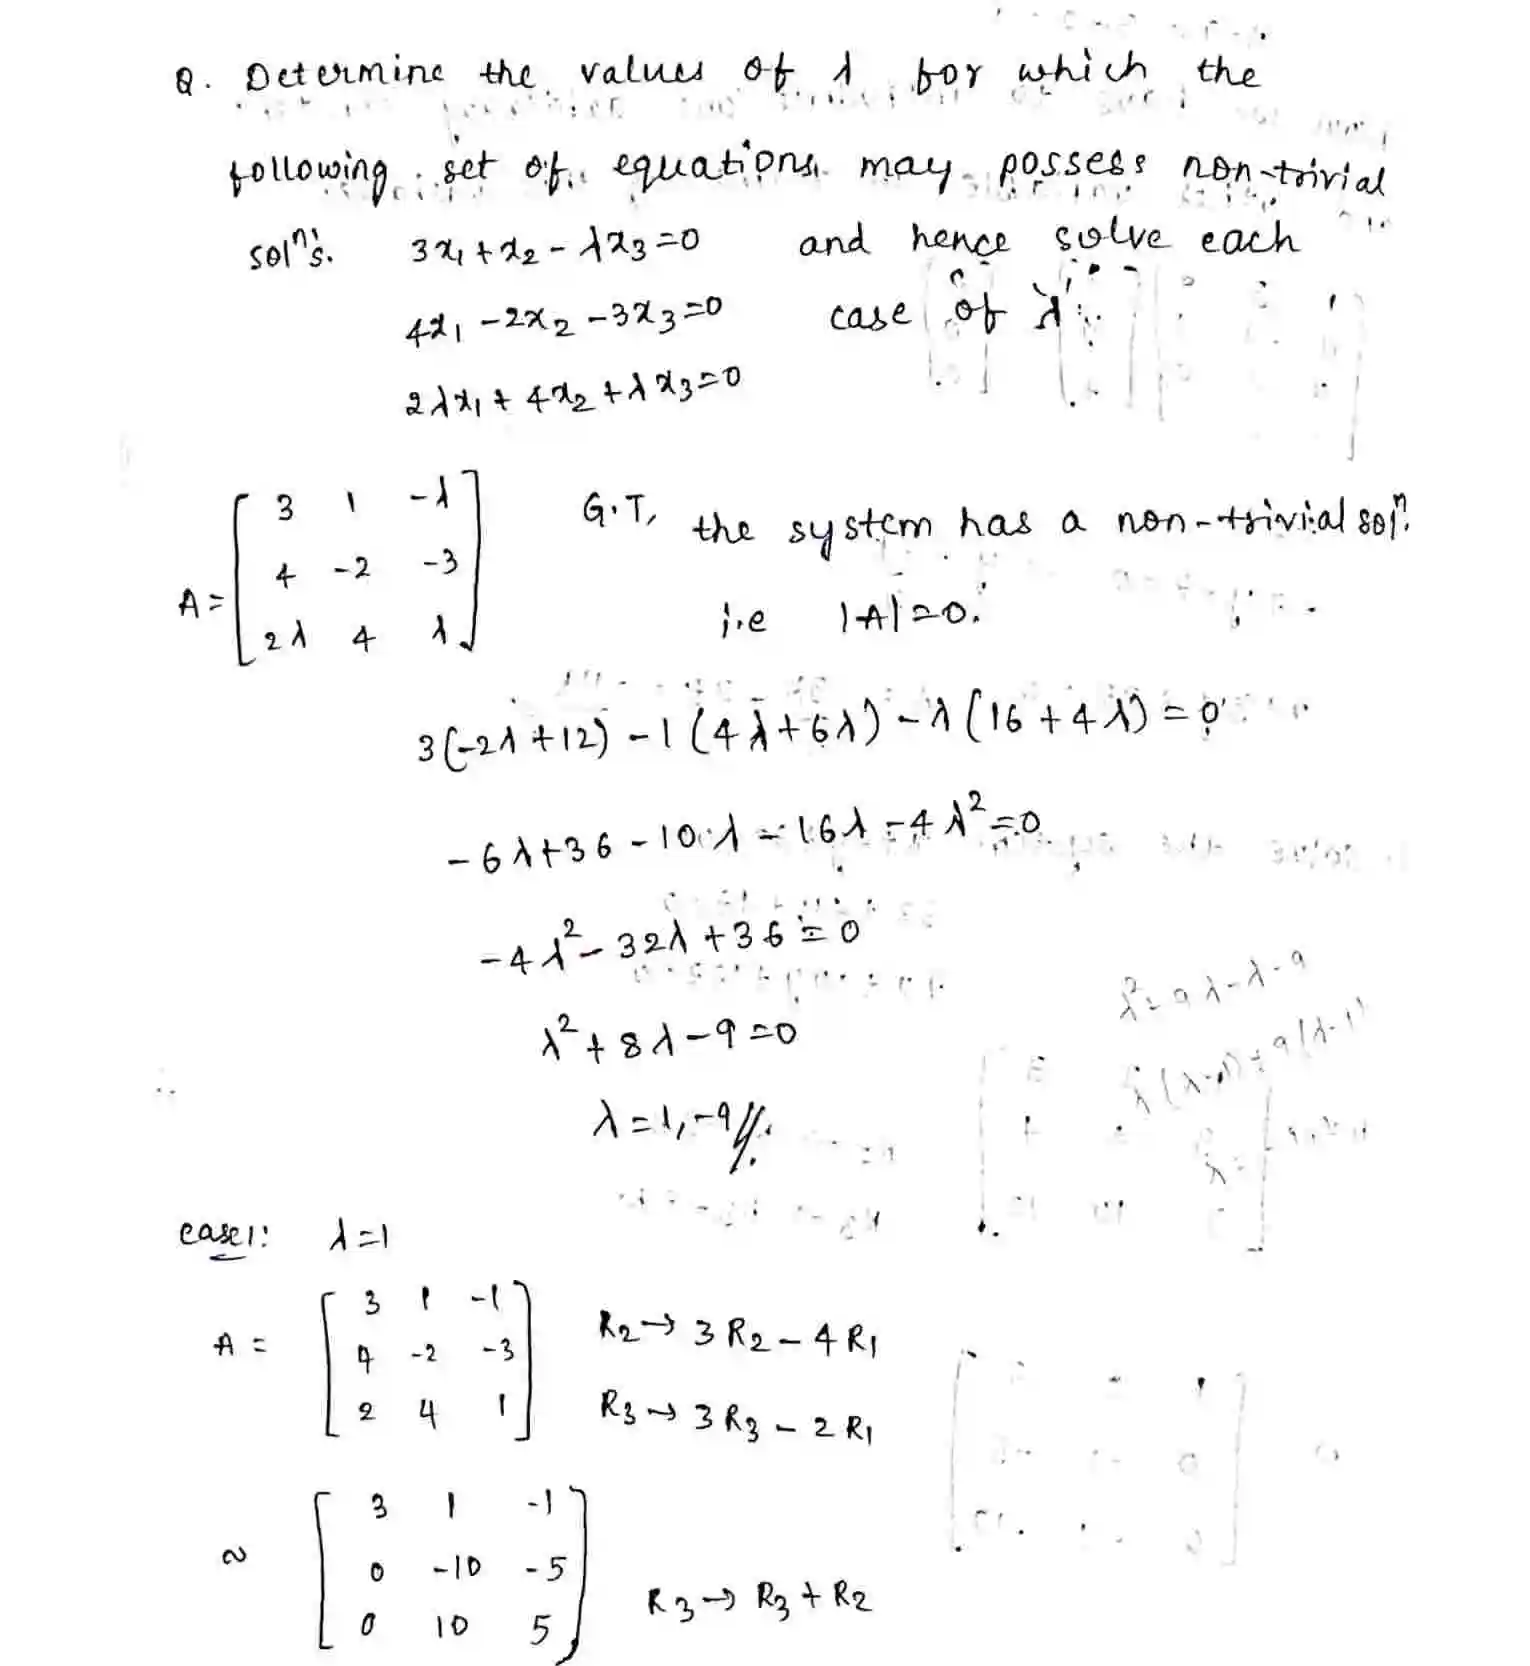 Q. Determine the values of λ for which the
following set of equations may possess non-trivial
solⁿs. 3x₁ + x₂ - λx₃ = 0 and hence solve each
4x₁ - 2x₂ - 3x₃ = 0 case of λ.
2λx₁ + 4x₂ + λx₃ = 0
A = [ 3 1 -λ
4 -2 -3
2λ 4 λ ]
G.T, the system has a non-trivial solⁿ.
i.e |A| = 0.
3(-2λ + 12) - 1(4λ + 6λ) - λ(16 + 4λ) = 0
-6λ + 36 - 10λ - 16λ - 4λ² = 0
-4λ² - 32λ + 36 = 0
λ² + 8λ - 9 = 0
λ = 1, -9 //.
case1: λ = 1
A = [ 3 1 -1
4 -2 -3
2 4 1 ]
R₂ → 3R₂ - 4R₁
R₃ → 3R₃ - 2R₁
~ [ 3 1 -1
0 -10 -5
0 10 5 ]
R₃ → R₃ + R₂